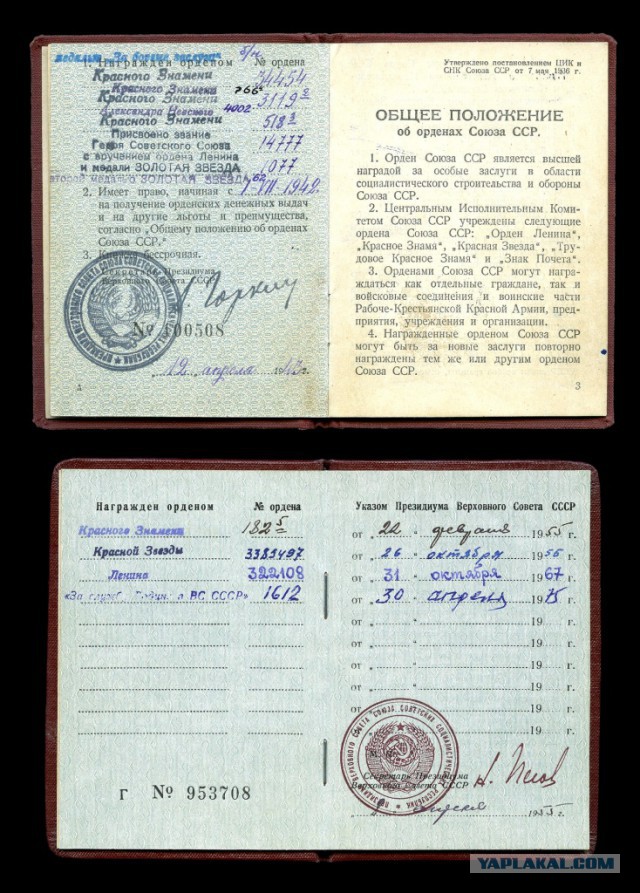 медалью „За боевые заслуги“ б/н
1. Награжден орденом № ордена
Красного Знамени 34454
Красного Знамени 766
Красного Знамени 3119
Александра Невского 4002
Красного Знамени 518
Присвоено звание
Героя Советского Союза 14777
с вручением ордена Ленина
и медали ЗОЛОТАЯ ЗВЕЗДА 1077
второй медалью ЗОЛОТАЯ ЗВЕЗДА 62
2. Имеет право, начиная с 1-VIII-1942
на получение орденских денежных выдач
и на другие льготы и преимущества,
согласно „Общему положению об орденах
Союза ССР.“
3. Книжка бессрочная.
Секретарь Президиума
Верховного Совета СССР
Горкин
№ 100508
12 апреля г.
Утверждено постановлением ЦИК и
СНК Союза ССР от 7 мая 1936 г.
ОБЩЕЕ ПОЛОЖЕНИЕ
об орденах Союза ССР.
1. Орден Союза ССР является высшей
наградой за особые заслуги в области
социалистического строительства и обороны
Союза ССР.
2. Центральным Исполнительным Коми-
тетом Союза ССР учреждены следующие
ордена Союза ССР: „Орден Ленина“,
„Красное Знамя“, „Красная Звезда“, „Тру-
довое Красное Знамя“ и „Знак Почета“.
3. Орденами Союза ССР могут награ-
ждаться как отдельные граждане, так и
войсковые соединения и воинские части
Рабоче-Крестьянской Красной Армии, пред-
приятия, учреждения и организации.
4. Награжденные орденом Союза ССР
могут быть за новые заслуги повторно
награждены тем же или другим орденом
Союза ССР.
3
Награжден орденом № ордена Указом Президиума Верховного Совета СССР
Красного Знамени 182 5 от „22 “ февраля 1955 г.
Красной Звезды 3383497 от „26 “ октября 1955 г.
Ленина 322108 от „31 “ октября 1967 г.
«За службу Родине в ВС СССР» 1612 от „30 “ апреля 1975 г.
от „ “ 19 г.
от „ “ 19 г.
от „ “ 19 г.
от „ “ 19 г.
от „ 19 г.
М. П.
Секретарь Президиума
Верховного Совета СССР
Н. Пегов
Г № 953708
апреля 1955 г.
YAPLAKAL.COM